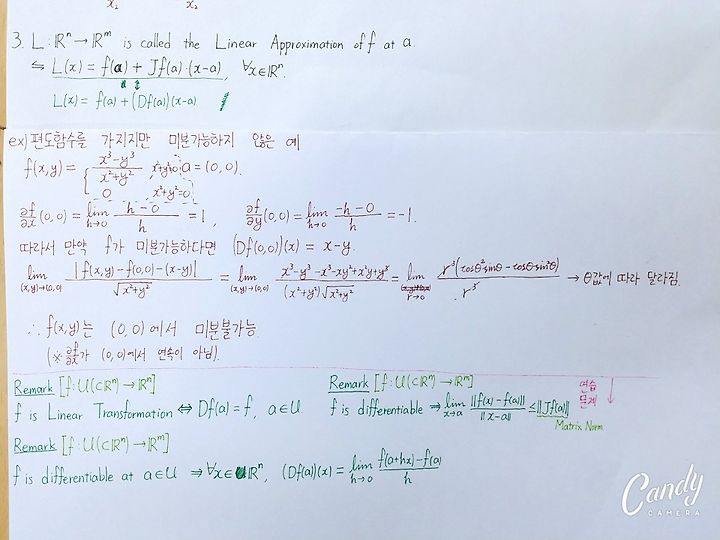 x₁ x₂
3. L : ℝⁿ → ℝᵐ is called the Linear Approximation of f at a.
⇋ L(x) = f(a) + Jf(a)·(x-a), ∀x∈ℝⁿ.
L(x) = f(a) + (Df(a))(x-a)
ex) 편도함수를 가지지만 미분가능하지 않은 예
f(x,y) = { (x³-y³)/(x²+y²), x²+y²≠0 ; 0, x²+y²=0 } a = (0,0).
∂f/∂x (0,0) = lim_{h→0} (h-0)/h = 1, ∂f/∂y (0,0) = lim_{h→0} (-h-0)/h = -1.
따라서 만약 f가 미분가능하다면 (Df(0,0))(x) = x-y.
lim_{(x,y)→(0,0)} |f(x,y)-f(0,0)-(x-y)| / √(x²+y²) = lim_{(x,y)→(0,0)} (x³-y³-x³-xy²+x²y+y³) / ((x²+y²)√(x²+y²)) = lim_{r→0} r³(cosθ²sinθ-cosθsin²θ) / r³ → θ값에 따라 달라짐.
∴ f(x,y)는 (0,0)에서 미분불가능.
(※ ∂f/∂x가 (0,0)에서 연속이 아님).
Remark [f : U(⊂ℝⁿ) → ℝⁿ]
f is Linear Transformation ⇔ Df(a) = f, a∈U.
Remark [f : U(⊂ℝⁿ) → ℝᵐ]
f is differentiable ⇒ lim_{x→a} ‖f(x)-f(a)‖ / ‖x-a‖ ≤ ‖Jf(a)‖
Matrix Norm
연습
문제
Remark [f : U(⊂ℝⁿ) → ℝᵐ]
f is differentiable at a∈U ⇒ ∀x∈ℝⁿ, (Df(a))(x) = lim_{h→0} (f(a+hx)-f(a))/h
Candy
CAMERA